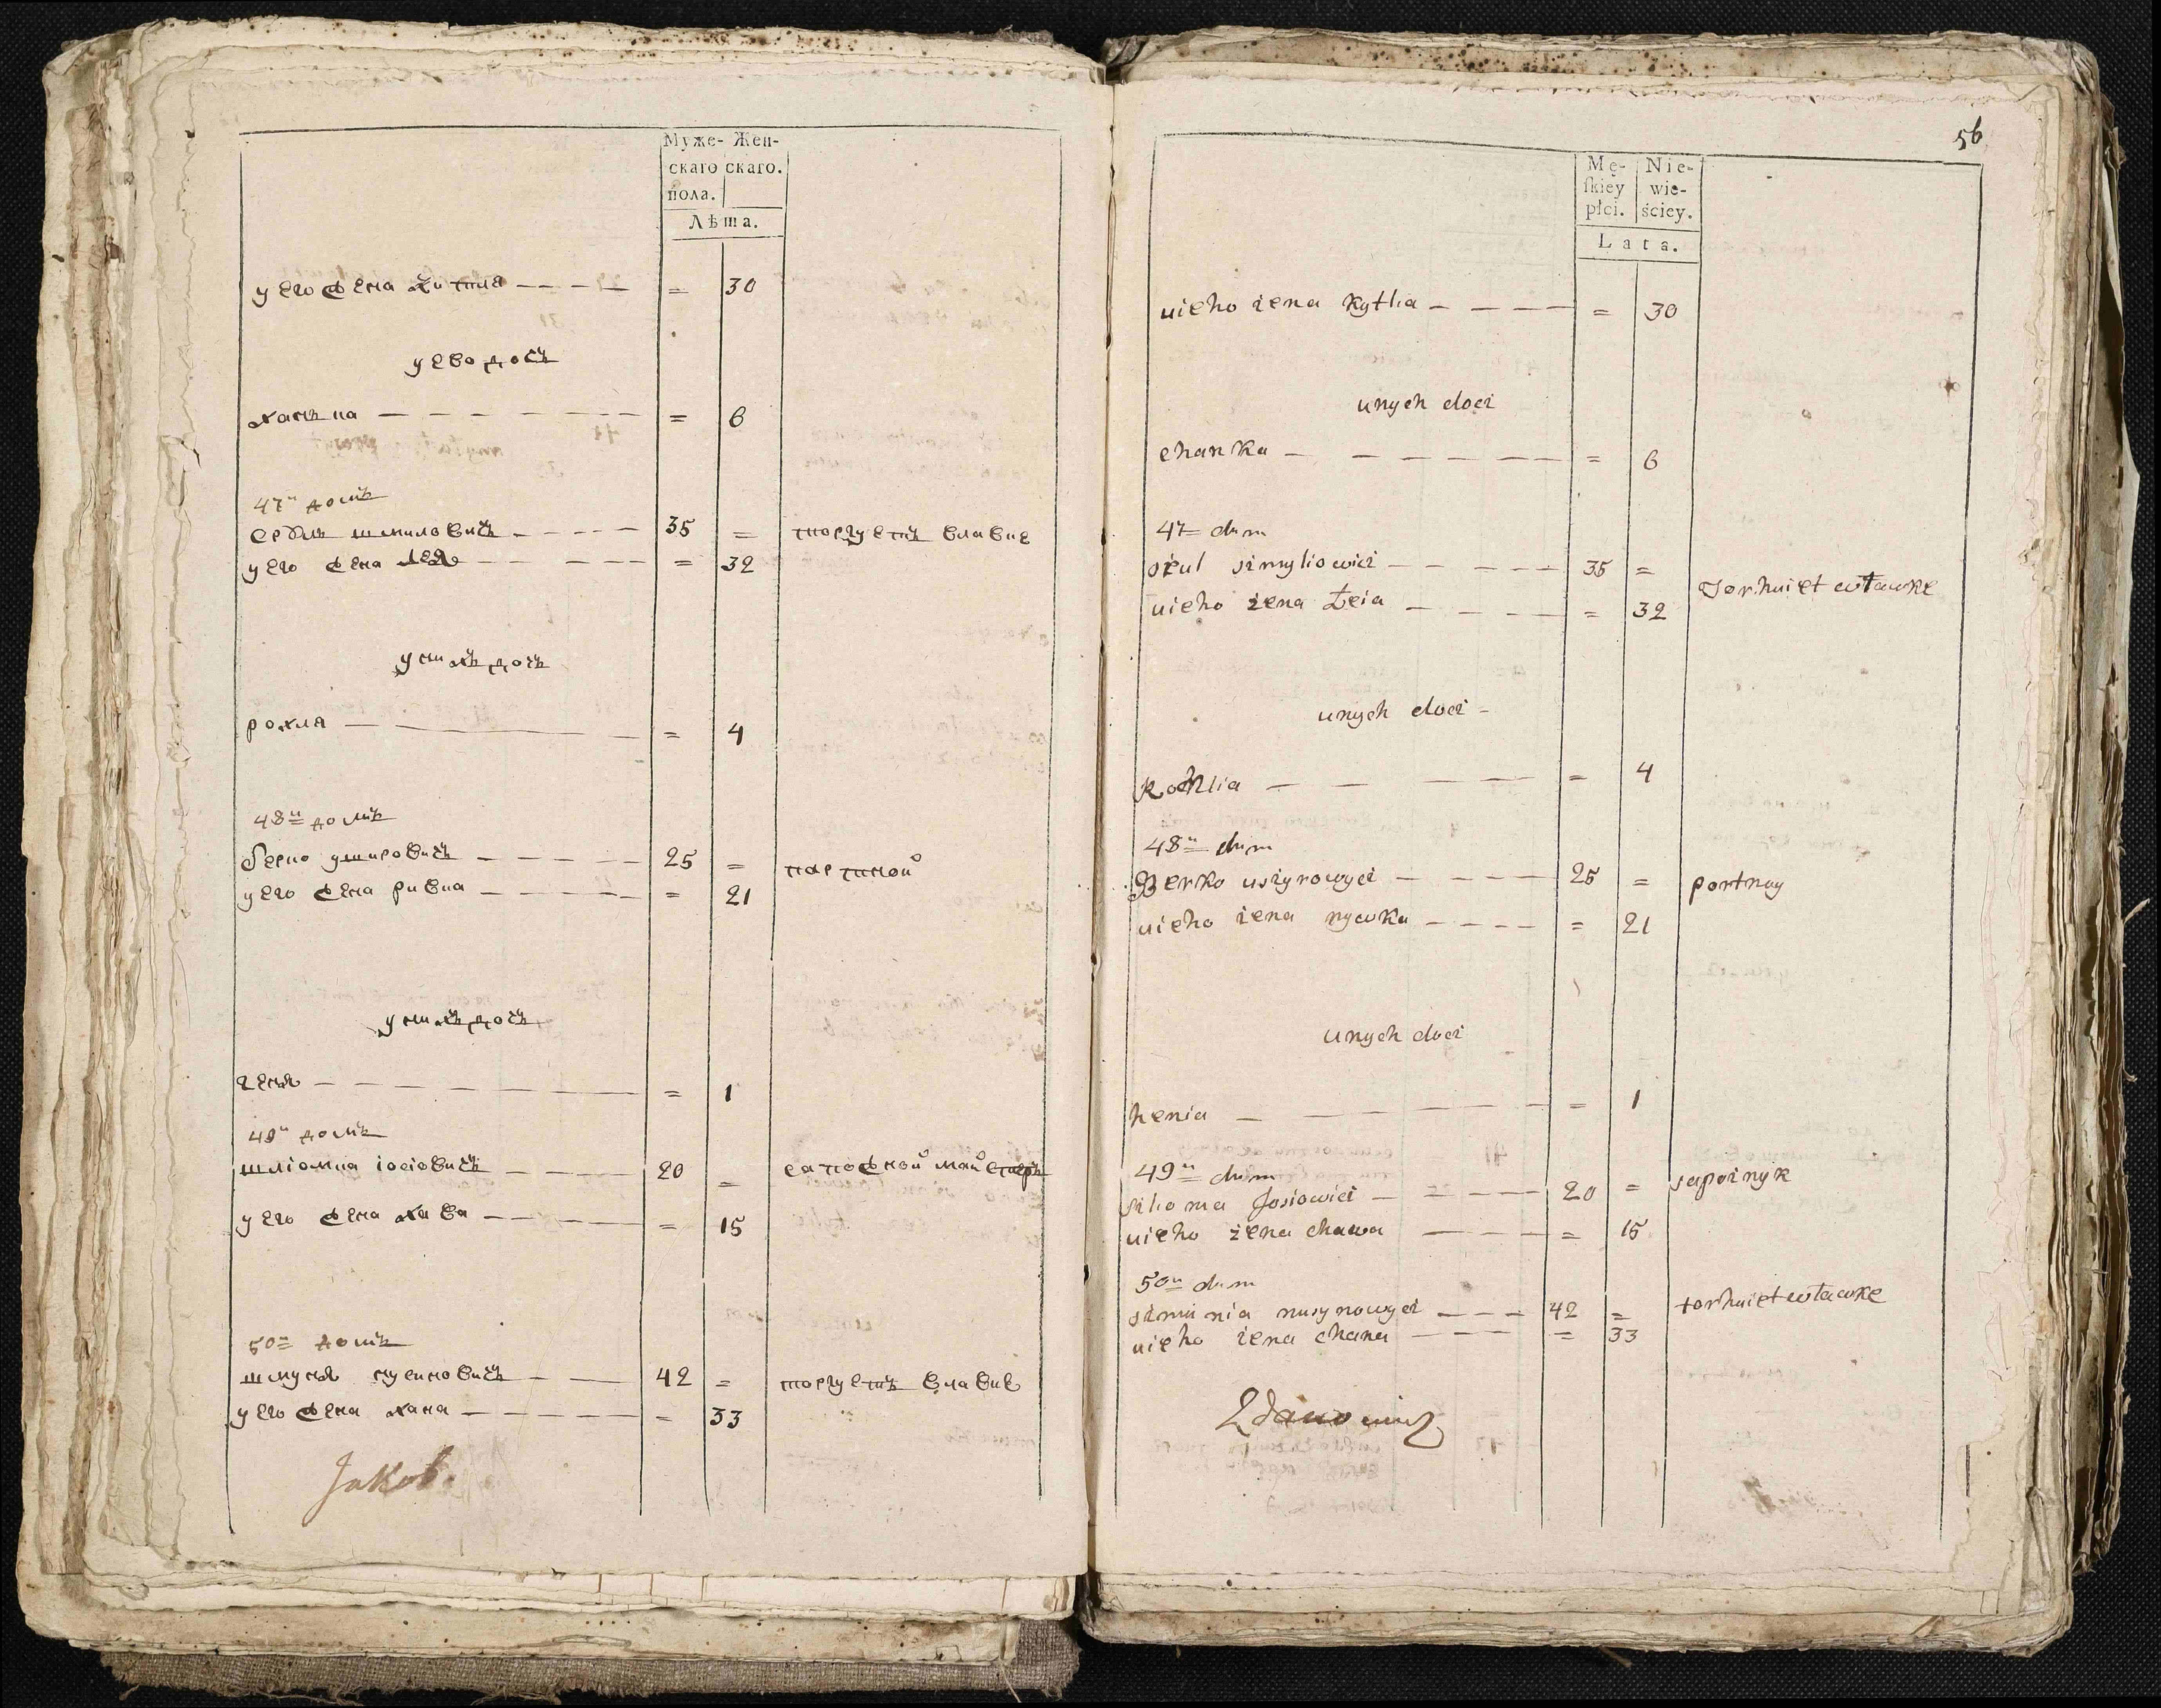 Муже- Жен-
скаго скаго.
пола.
Лѣта.
у его жена китля = 30
у ево дочъ
ханъка = 6
47й домъ
шмиловичъ 35 = торгуетъ влавке
у его жена лея = 32
у нихъ дочъ
рохля = 4
48й домъ
берко ушировичъ 25 = партной
у его жена ривка = 21
у нихъ дочъ
геня = 1
49й домъ
шліомка іосіовичъ 20 = сапожной майстеръ
у его жена хава = 15
50й домъ
шмуня нусиновичъ 42 = торгуетъ влавке
у его жена хана = 33
Jakob.
56
Mę- Nie-
skiey wie-
płci. ściey.
Lata.
uieho żena Kytlia = 30
unych docz
chanka = 6
47 dum
szmyliowicz 35 =
Torhuiet wławke
uieho żena Łeia = 32
unych docz
Rochlia = 4
48й dum
Berko uszyrowycz 25 = portnoy
uieho żena rywka = 21
unych docz
henia = 1
49й dum
szlioma Josiowicz 20 = sapożnyk
uieho żena chawa = 15
50й dum
szmunia nusynowycz 42 = torhuiet wławke
uieho żena chana = 33
Zdanowicz